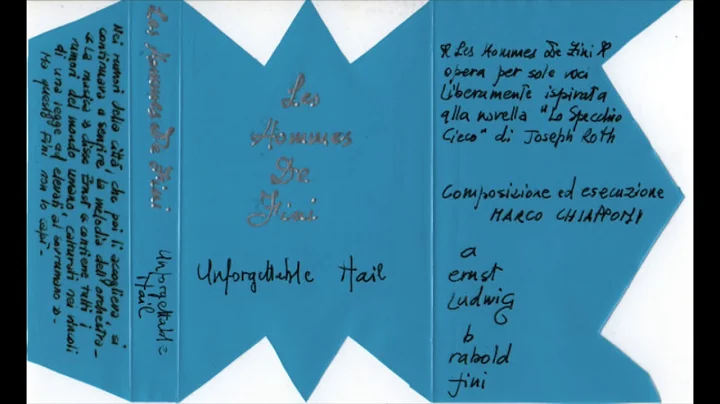 Nei rumori della città, che poi li accogliera, si
continuava a sentire la melodia dell'orchestra-
« La musica » disse Ernst « contiene tutti i
rumori del mondo umano, catturati nei vincoli
di una legge ed elevati al sovrumano ».
Ma questo Fini non lo capì-
Les Hommes De Fini
Unforgettable
Hail
Les
Hommes
De
Fini
Unforgettable Hail
Les Hommes De Fini
opera per sole voci
liberamente ispirata
alla novella "Lo Specchio
Cieco" di Joseph Roth
Composizione ed esecuzione
MARCO CHIAPPONI
a
ernst
Ludwig
b
rabold
fini